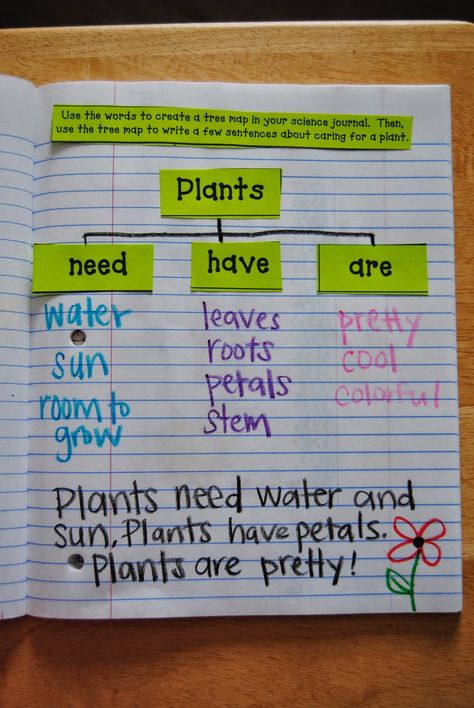 Use the words to create a tree map in your science journal. Then,
use the tree map to write a few sentences about caring for a plant.
Plants
need
have
are
water
sun
room to
grow
leaves
roots
petals
stem
pretty
cool
colorful
Plants need water and
sun. Plants have petals.
Plants are pretty!